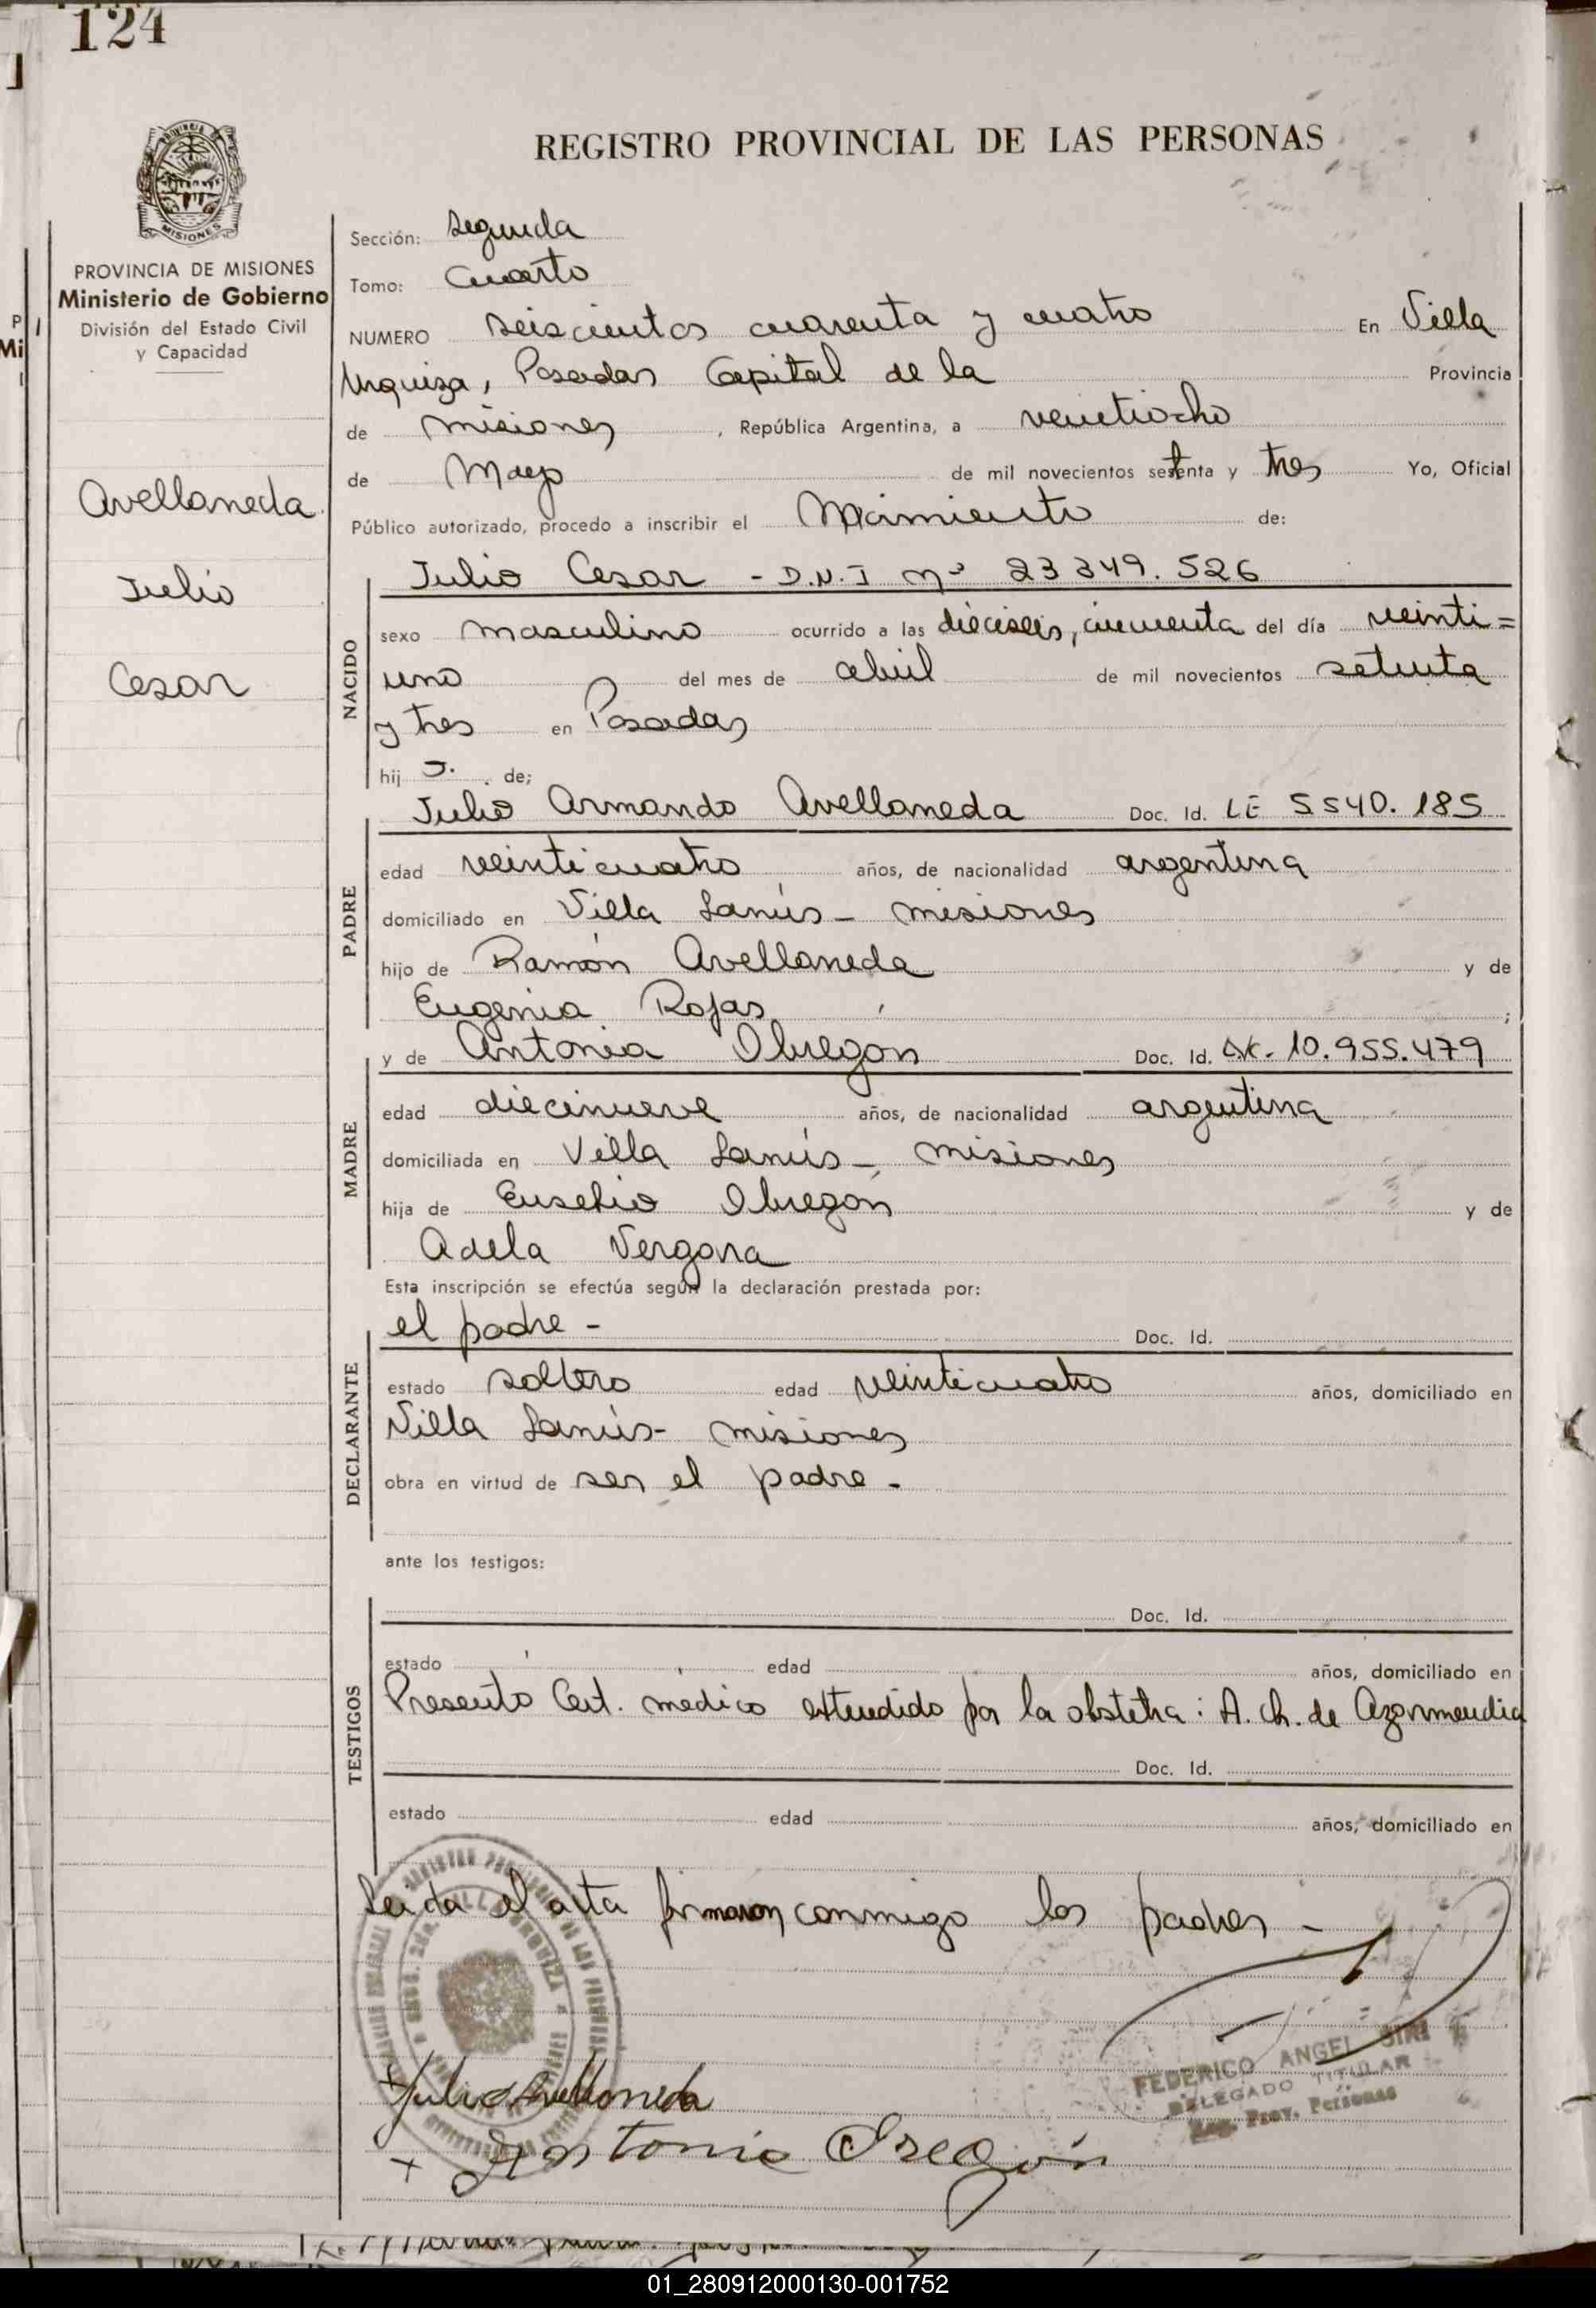 124
REGISTRO PROVINCIAL DE LAS PERSONAS
MISIONES
PROVINCIA DE MISIONES
Ministerio de Gobierno
División del Estado Civil
y Capacidad
Avellaneda
Julio
Cesar
Sección: Segunda
Tomo: Cuarto
NUMERO Seiscientos cuarenta y cuatro En Villa
Urquiza, Posadas Capital de la Provincia
de Misiones, República Argentina, a veintiocho
de Mayo de mil novecientos setenta y tres Yo, Oficial
Público autorizado, procedo a inscribir el Nacimiento de:
NACIDO
Julio Cesar - D.N.I nº 23 349.526
sexo masculino ocurrido a las dieciseis, cincuenta del día veinti=
uno del mes de abril de mil novecientos setenta
y tres en Posadas
hij o. de;
PADRE
Julio Armando Avellaneda Doc. Id. LE 5540.185
edad veinticuatro años, de nacionalidad argentina
domiciliado en Villa Lanús - misiones
hijo de Ramón Avellaneda y de
Eugenia Rojas ;
MADRE
y de Antonia Obregon Doc. Id. 10.955.479
edad diecinueve años, de nacionalidad argentina
domiciliada en Villa Lanús - misiones
hija de Eusebio Obregón y de
Adela Vergara
Esta inscripción se efectúa según la declaración prestada por:
DECLARANTE
el padre - Doc. Id.
estado soltero edad veinticuatro años, domiciliado en
Villa Lanús - misiones
obra en virtud de ser el padre -
ante los testigos:
TESTIGOS
Doc. Id.
estado edad años, domiciliado en
Presentó Cert. médico extendido por la obstetra : A. Ch. de Azormendia
Doc. Id.
estado edad años, domiciliado en
Leida el acta firmaron conmigo los padres -
FEDERICO ANGEL SIRI
DELEGADO TITULAR
Reg. Prov. Personas
Julio Avellaneda
Antonia Oregón
01_280912000130-001752